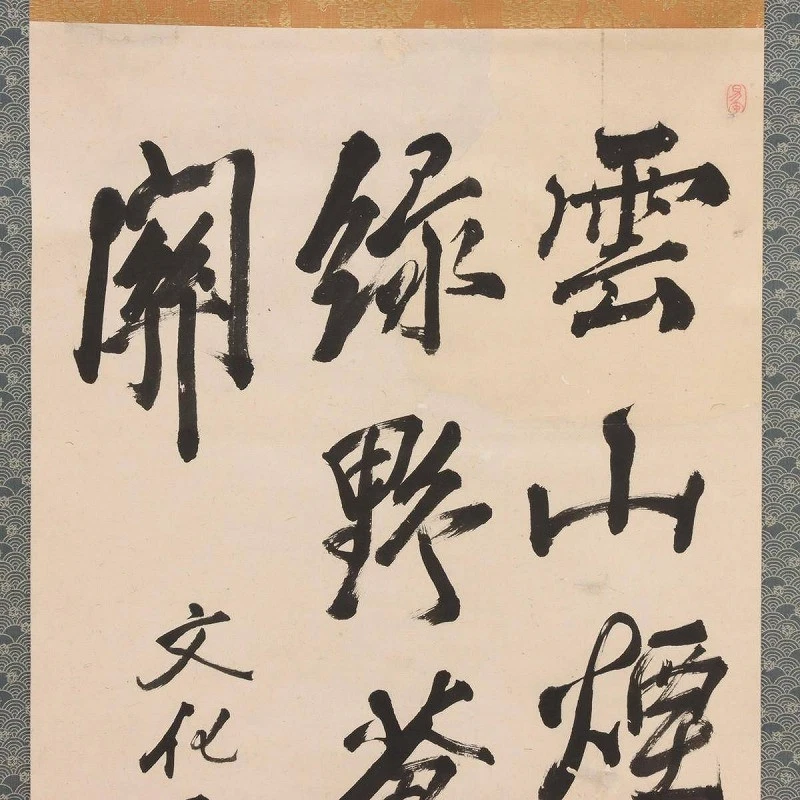 雲山煙
綠野蒼
關
文化